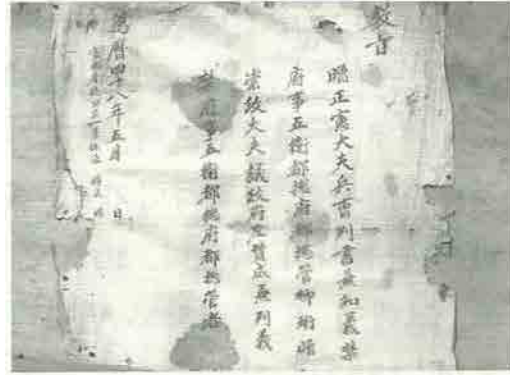 敎旨
贈正憲大夫兵曹判書兼知義禁
府事五衛都摠府都摠管柳珩贈
崇政大夫議政府左贊成兼判義
禁府事五衛都摠府都摠管者
萬曆四十八年五月 日